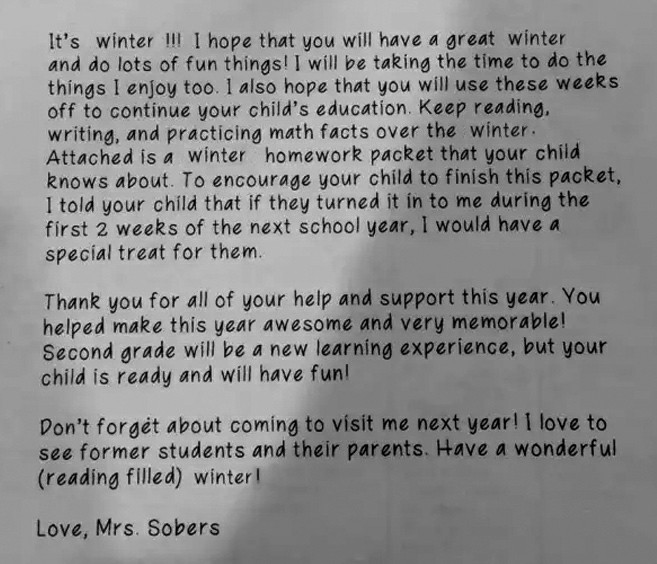 It's winter !!! I hope that you will have a great winter
and do lots of fun things! I will be taking the time to do the
things I enjoy too. I also hope that you will use these weeks
off to continue your child's education. Keep reading,
writing, and practicing math facts over the winter.
Attached is a winter homework packet that your child
knows about. To encourage your child to finish this packet,
I told your child that if they turned it in to me during the
first 2 weeks of the next school year, I would have a
special treat for them.
Thank you for all of your help and support this year. You
helped make this year awesome and very memorable!
Second grade will be a new learning experience, but your
child is ready and will have fun!
Don't forget about coming to visit me next year! I love to
see former students and their parents. Have a wonderful
(reading filled) winter!
Love, Mrs. Sobers